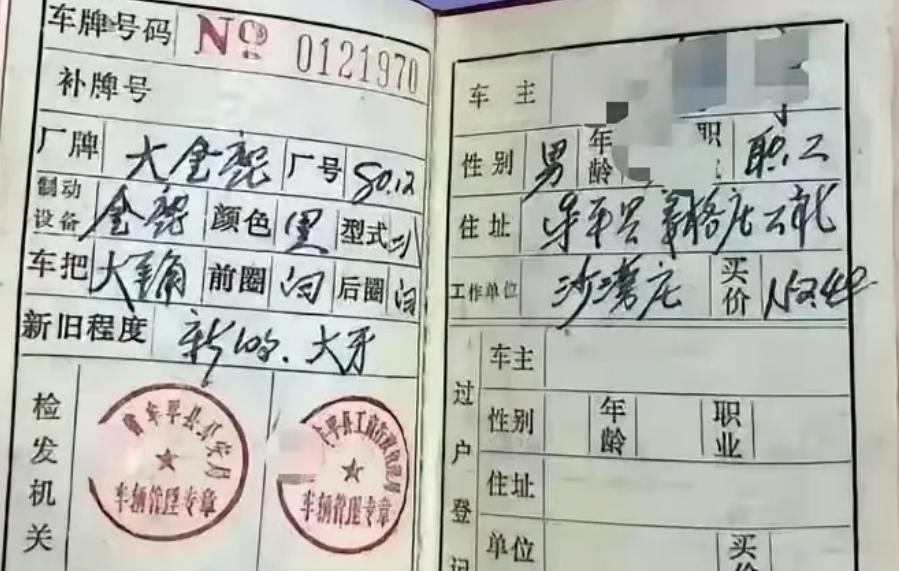 车牌号码 № 0121970
补牌号
厂牌 大金鹿 厂号 80.12
制动设备 金鹿 颜色 黑 型式
车把 大 前圈 后圈
新旧程度 新 大
检发机关
牟平县
车辆管理专章
平县工商行政管理局
车辆管理专章
车主
性别 男 年龄 职 职工
住址 牟平县 格庄
工作单位 沙 庄 买价
过户登记
车主
性别 年龄 职业
住址
单位 买价